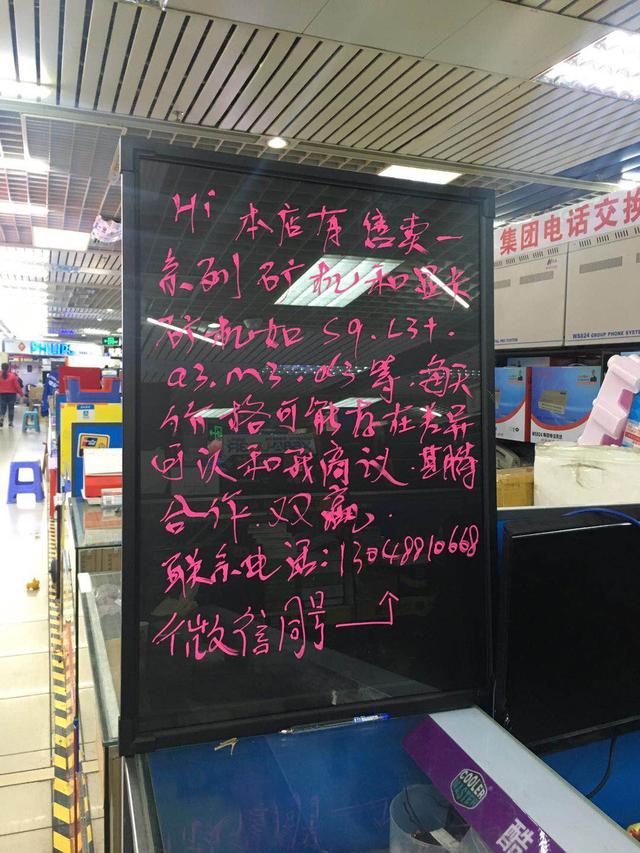 Hi 本店有售卖一
系列矿机和显卡
矿机如 S9.L3+.
a3.m3.d3等.每天
价格可能存在差异
可议和我商议.期待
合作.双赢.
联系电话:13048810668
微信同号
集团电话交换
PHILIPS
WS824 GROUP PHONE SYSTEM
COOLER MASTER
酷